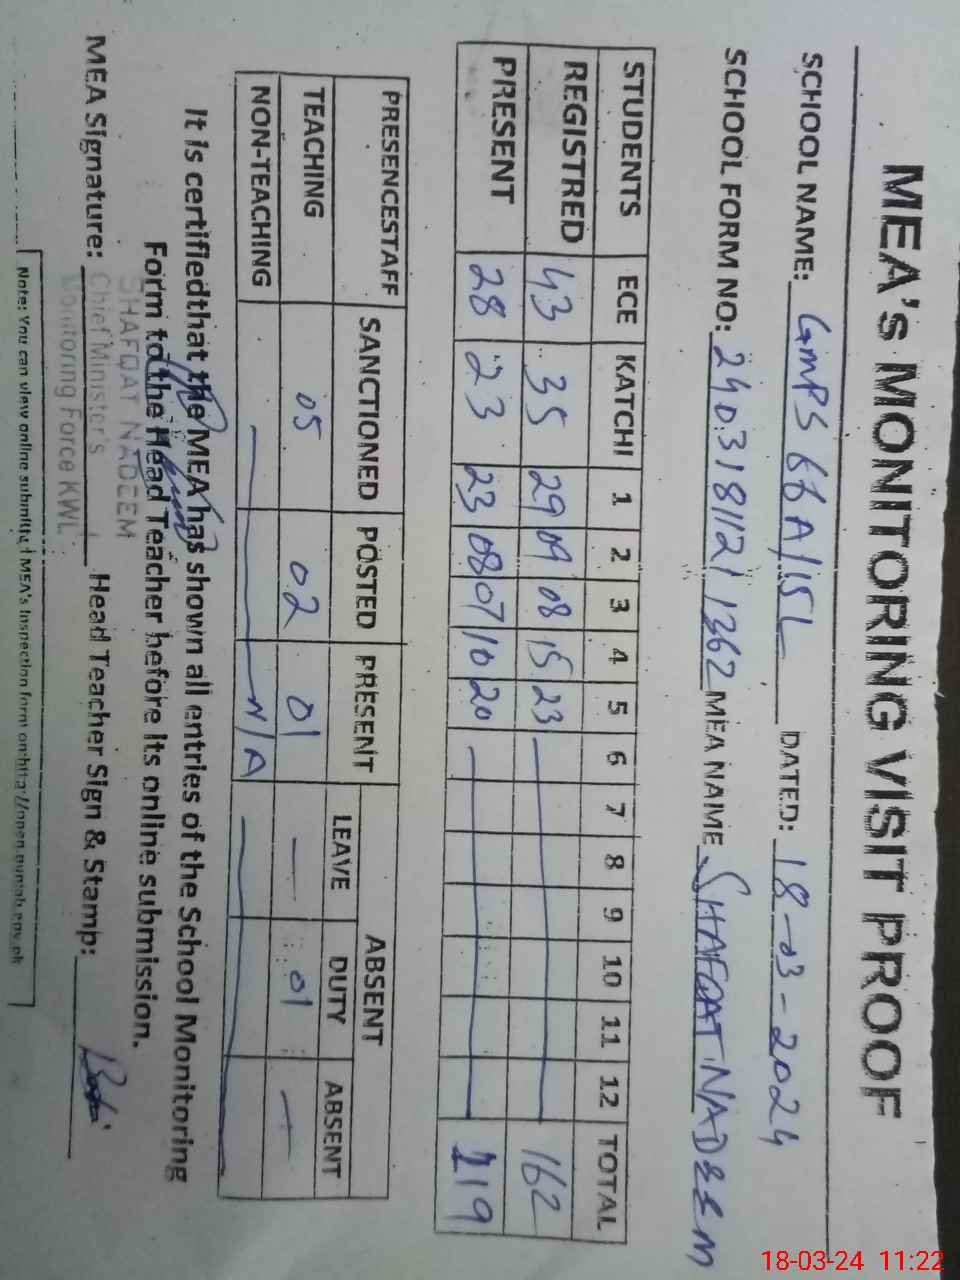 MEA's MONITORING VISIT PROOF
SCHOOL NAME: GMPS 66A/15L DATED: 18-03-2024
SCHOOL FORM NO: 2403181121 1362 MEA NAME SHAFQAT NADEEM
STUDENTS ECE KATCHI 1 2 3 4 5 6 7 8 9 10 11 12 TOTAL
REGISTRED 43 35 29 09 08 15 23 — 162
PRESENT 28 23 23 08 07 10 20 — 119
PRESENCESTAFF SANCTIONED POSTED PRESENT ABSENT
LEAVE DUTY ABSENT
TEACHING 05 02 01 — 01 —
NON-TEACHING — N/A —
It is certifiedthat the MEA has shown all entries of the School Monitoring
Form to the Head Teacher before its online submission.
SHAFQAT NADEEM
MEA Signature: Chief Minister's Head Teacher Sign & Stamp:
Monitoring Force KWL
Note: You can view online submitted MEA's Inspection form on:http://open.punjab.gov.pk
18-03-24 11:22